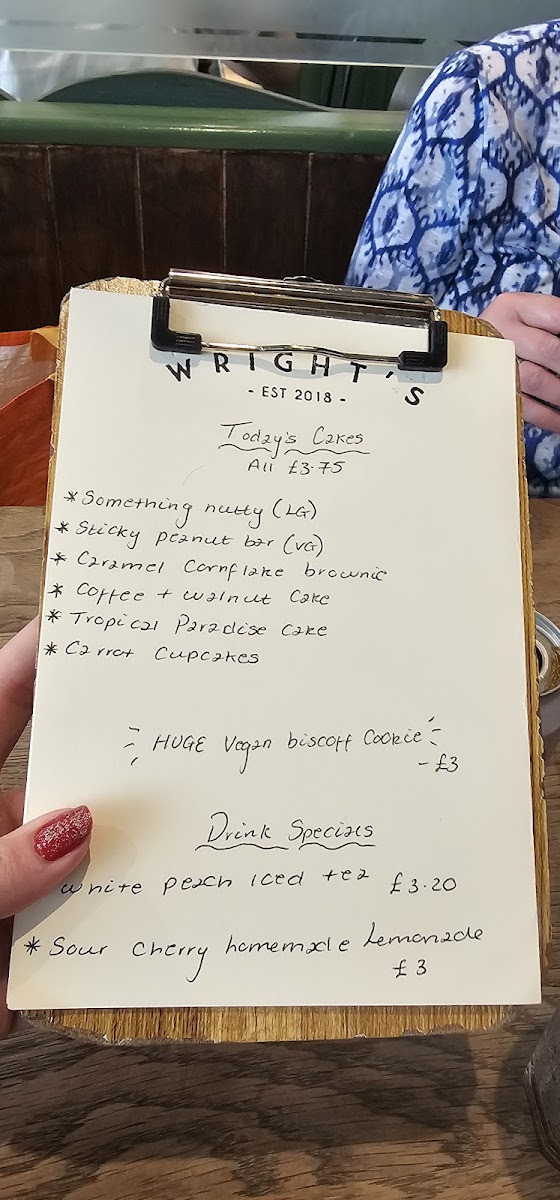 WRIGHT'S
- EST 2018 -
Today's Cakes
All £3.75
* Something nutty (LG)
* Sticky peanut bar (VG)
* Caramel Cornflake brownie
* Coffee + walnut Cake
* Tropical Paradise Cake
* Carrot Cupcakes
HUGE Vegan biscoff Cookie
- £3
Drink Specials
white peach Iced tea £3.20
* Sour cherry homemade Lemonade
£3